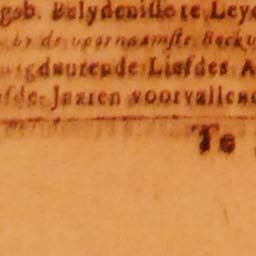 gob. Belydenisse te Leyd
de voornaamste
gdaurende Liefdes A
efde-Jaaren voorvallene
Te